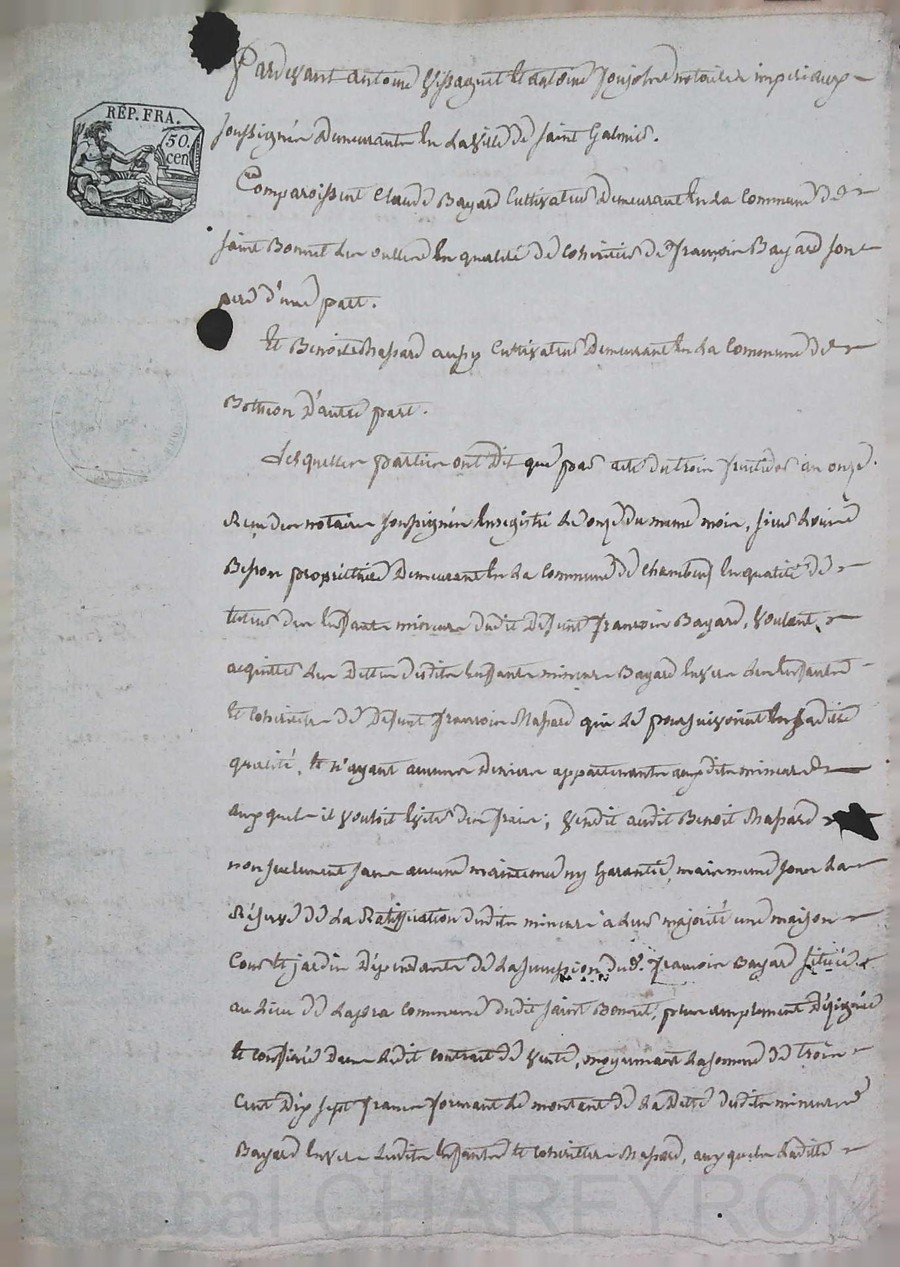 RÉP. FRA.
50.
cen
Pardevant antoine et antoine notaires imperiaux
soussignés Demeurants En la ville de saint Galmier.
Comparoissent Claude Bayard Cultivateur Demeurant En la Commune de
saint Bonnet les oulles En qualité de Cohéritier de françois Bayard son
pere d'une part.
Et Benoit Chapard aussy Cultivateur Demeurant En la Commune de
Bottheon D'autre part.
Lesquelles parties ont Dit que par acte du trois fructidor an onze.
Reçu des notaires soussignés Enregistré le onze du meme mois, sieur
Besson propriettaire Demeurant En la Commune de Chambeuf En qualité de
tuteur des Enfants mineurs dudit Defunt françois Bayard, voulant
acquitter les Dettes desdits Enfants mineurs Bayard Envers les Enfants
Et Cohéritiers de Defunt françois Chapard qui le poursuivoient En sadite
qualité, Et n'ayant aucuns Deniers appartenants auxdits mineurs
auxquels il vouloit Eviter des frais; vendit audit Benoit Chapard
non seulement sans aucune maintenue ny Garantie, mais meme sous la
Réserve de la Ratiffication desdits mineurs à leur majorité une maison
Cour Et jardin Dépendants de la sucession dud. françois Bayard située
au Lieu de Commune dudit saint Bonnet, plus amplement Désignée
Et confinée Dans ledit contrat de vente, moyennant la somme de trois
Cent Dix sept francs formant le montant de la Dette desdits mineurs
Bayard Envers lesdits Enfants Et Cohéritiers Chapard, auxquels ladite
Pasbal CHAREYRON